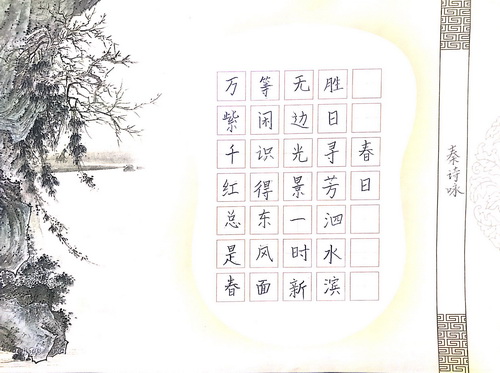 春日
胜日寻芳泗水滨
无边光景一时新
等闲识得东风面
万紫千红总是春
秦诗咏